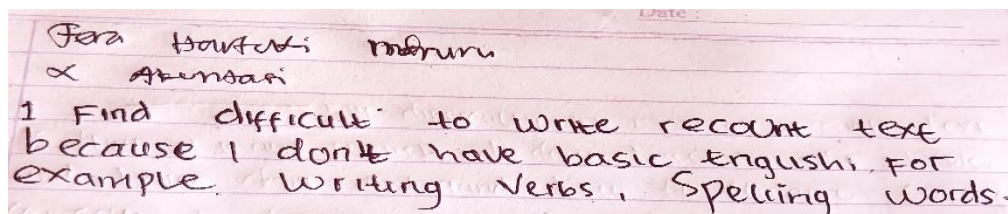 Date :
Fera maruru
X Akuntansi
I Find difficult to write recount text
because I don't have basic English, For
example. Writing Verbs, Spelling words.